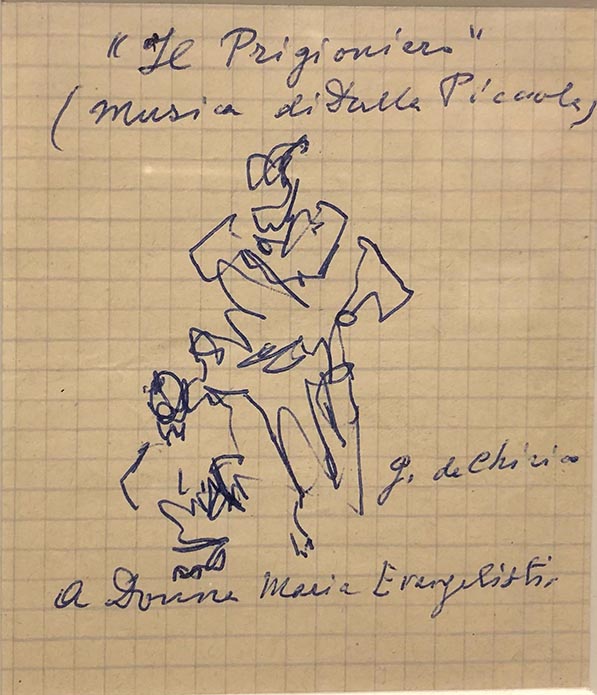 "Il Prigioniero"
(musica di Dalla Piccola)
G. de Chirico
A Donna Maria Evangelisti.